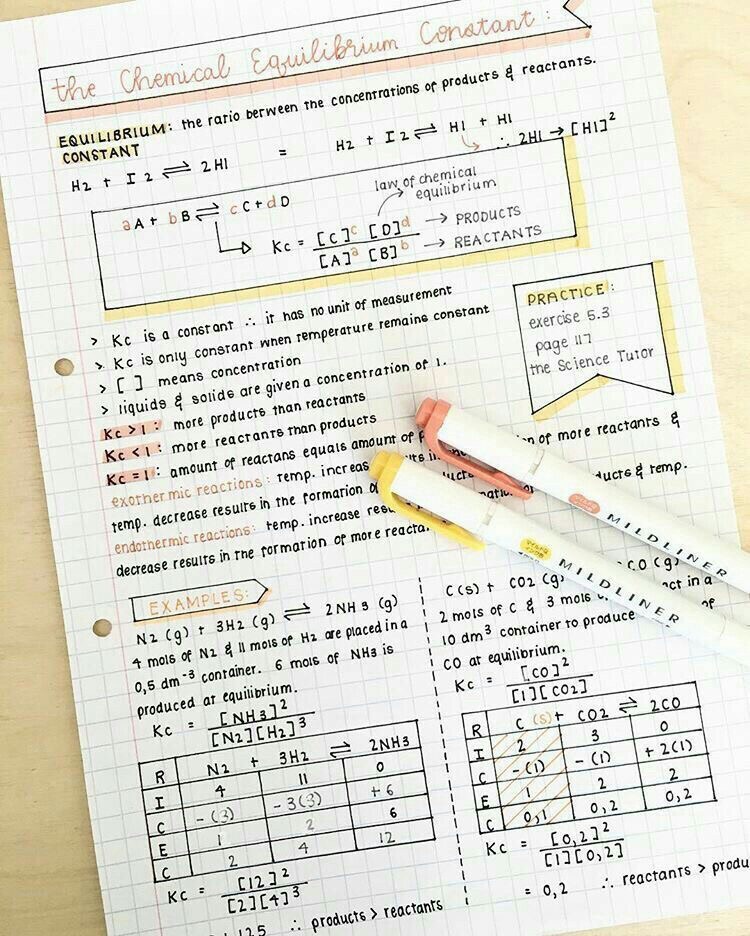 the Chemical Equilibrium Constant:
EQUILIBRIUM: the ratio between the concentrations of products & reactants.
CONSTANT
H2 + I2 ⇌ 2HI = H2 + I2 ⇌ HI + HI
∴ 2HI → [HI]²
aA + bB ⇌ cC + dD
law of chemical
equilibrium
Kc = [C]ᶜ [D]ᵈ → PRODUCTS
[A]ᵃ [B]ᵇ → REACTANTS
PRACTICE:
exercise 5.3
page 117
the Science Tutor
> Kc is a constant ∴ it has no unit of measurement
> Kc is only constant when temperature remains constant
> [ ] means concentration
> liquids & solids are given a concentration of 1.
Kc > 1: more products than reactants
Kc < 1: more reactants than products
Kc = 1: amount of reactans equals amount of
exothermic reactions: temp. increas in the of more reactants &
temp. decrease results in the formation of ducts & temp.
endothermic reactions: temp. increase
decrease results in the formation of more
MILDLINER
MILDLINER
EXAMPLES:
N2 (g) + 3H2 (g) ⇌ 2NH3 (g)
4 mols of N2 & 11 mols of H2 are placed in a
0,5 dm⁻³ container. 6 mols of NH3 is
produced at equilibrium.
Kc = [NH3]²
[N2][H2]³
R N2 + 3H2 ⇌ 2NH3
I 4 11 0
C -(3) -3(3) +6
E 1 2 6
C 2 4 12
Kc = [12]²
[2][4]³
125 ∴ products > reactants
C(s) + CO2 (g) CO (g)
2 mols of C & 3 mols in a
10 dm³ container to produce of
CO at equilibrium.
Kc = [CO]²
[1][CO2]
R C (s) + CO2 ⇌ 2CO
I 2 3 0
C -(1) -(1) +2(1)
E 1 2 2
C 0,1 0,2 0,2
Kc = [0,2]²
[1][0,2]
= 0,2 ∴ reactants > produ